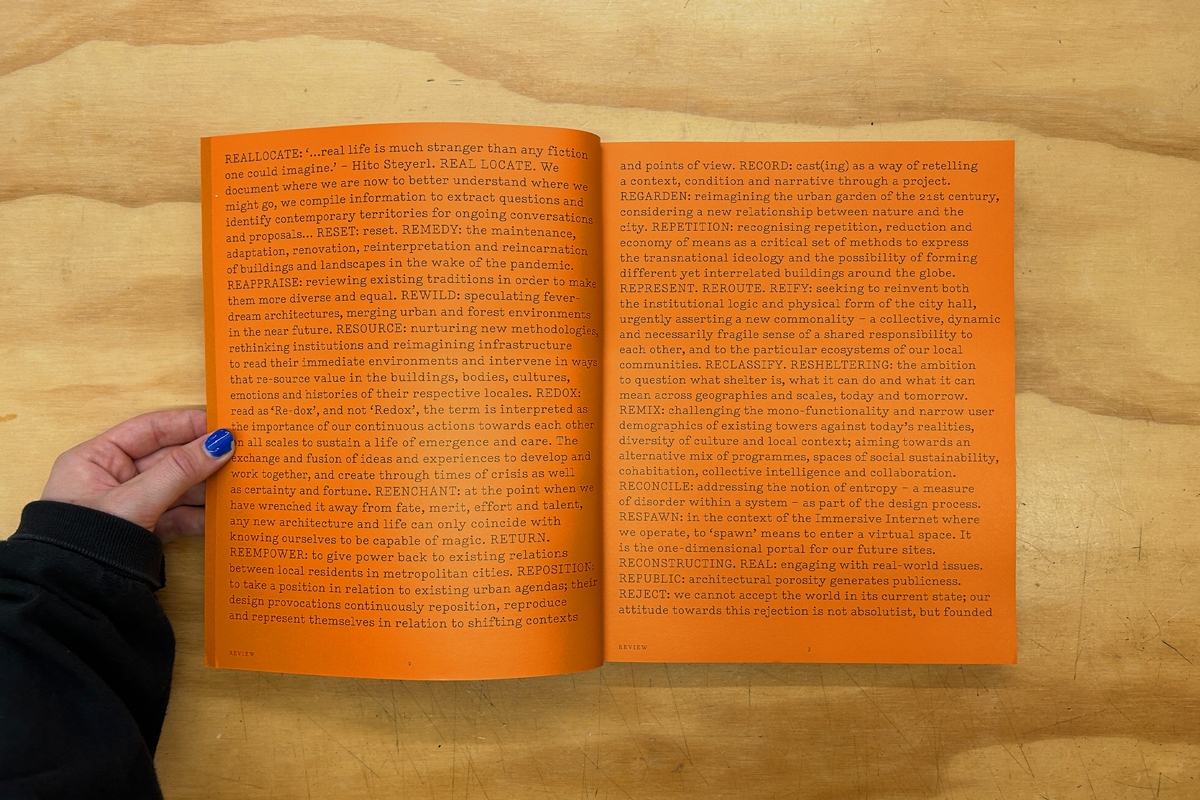 REALLOCATE: ‘...real life is much stranger than any fiction
one could imagine.’ – Hito Steyerl. REAL LOCATE. We
document where we are now to better understand where we
might go, we compile information to extract questions and
identify contemporary territories for ongoing conversations
and proposals... RESET: reset. REMEDY: the maintenance,
adaptation, renovation, reinterpretation and reincarnation
of buildings and landscapes in the wake of the pandemic.
REAPPRAISE: reviewing existing traditions in order to make
them more diverse and equal. REWILD: speculating fever-
dream architectures, merging urban and forest environments
in the near future. RESOURCE: nurturing new methodologies,
rethinking institutions and reimagining infrastructure
to read their immediate environments and intervene in ways
that re-source value in the buildings, bodies, cultures,
emotions and histories of their respective locales. REDOX:
read as ‘Re-dox’, and not ‘Redox’, the term is interpreted as
the importance of our continuous actions towards each other
on all scales to sustain a life of emergence and care. The
exchange and fusion of ideas and experiences to develop and
work together, and create through times of crisis as well
as certainty and fortune. REENCHANT: at the point when we
have wrenched it away from fate, merit, effort and talent,
any new architecture and life can only coincide with
knowing ourselves to be capable of magic. RETURN.
REEMPOWER: to give power back to existing relations
between local residents in metropolitan cities. REPOSITION:
to take a position in relation to existing urban agendas; their
design provocations continuously reposition, reproduce
and represent themselves in relation to shifting contexts
REVIEW
2
and points of view. RECORD: cast(ing) as a way of retelling
a context, condition and narrative through a project.
REGARDEN: reimagining the urban garden of the 21st century,
considering a new relationship between nature and the
city. REPETITION: recognising repetition, reduction and
economy of means as a critical set of methods to express
the transnational ideology and the possibility of forming
different yet interrelated buildings around the globe.
REPRESENT. REROUTE. REIFY: seeking to reinvent both
the institutional logic and physical form of the city hall,
urgently asserting a new commonality – a collective, dynamic
and necessarily fragile sense of a shared responsibility to
each other, and to the particular ecosystems of our local
communities. RECLASSIFY. RESHELTERING: the ambition
to question what shelter is, what it can do and what it can
mean across geographies and scales, today and tomorrow.
REMIX: challenging the mono-functionality and narrow user
demographics of existing towers against today’s realities,
diversity of culture and local context; aiming towards an
alternative mix of programmes, spaces of social sustainability,
cohabitation, collective intelligence and collaboration.
RECONCILE: addressing the notion of entropy – a measure
of disorder within a system – as part of the design process.
RESPAWN: in the context of the Immersive Internet where
we operate, to ‘spawn’ means to enter a virtual space. It
is the one-dimensional portal for our future sites.
RECONSTRUCTING. REAL: engaging with real-world issues.
REPUBLIC: architectural porosity generates publicness.
REJECT: we cannot accept the world in its current state; our
attitude towards this rejection is not absolutist, but founded
REVIEW
3